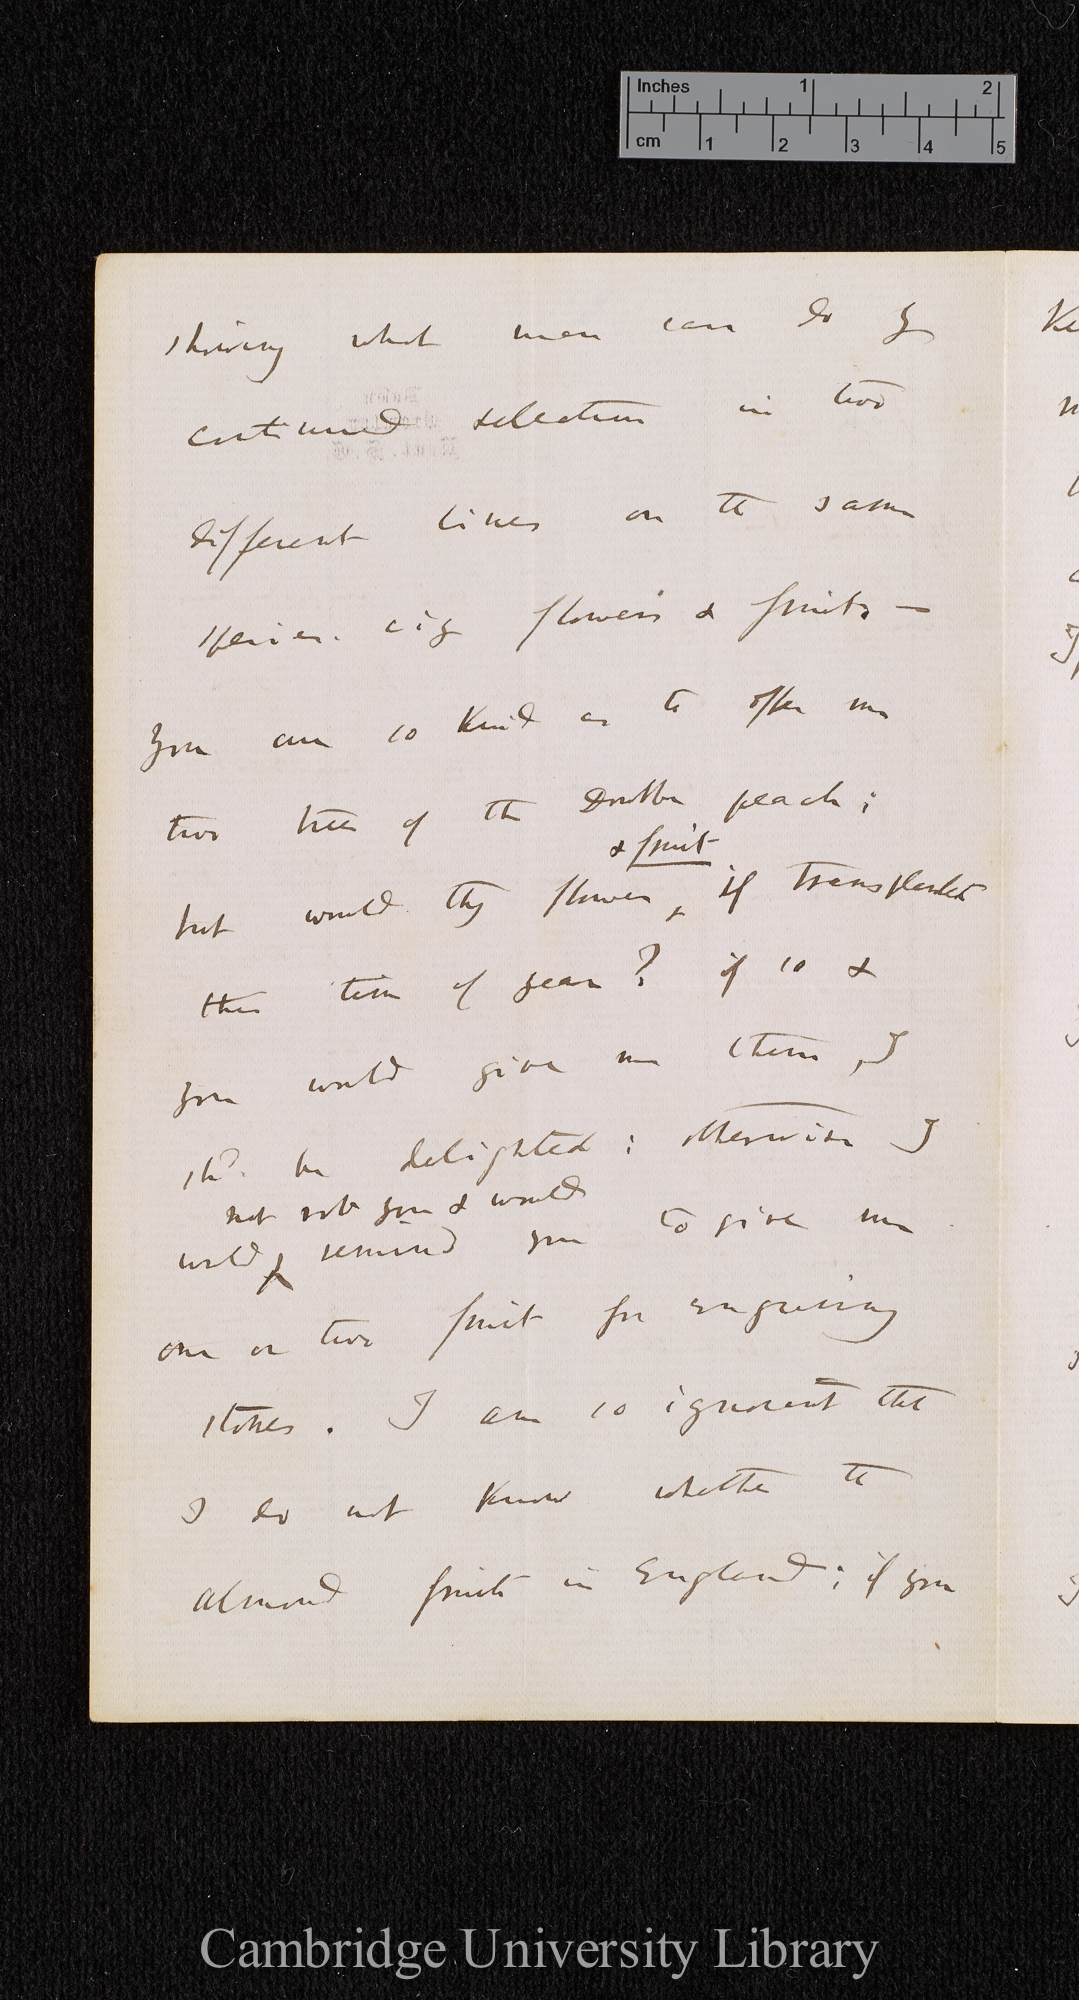 Inches 1 2
cm 1 2 3 4 5
showing what man can do by
continued selection in two
different lines on the same
species. viz flowers & fruits —
you are so kind as to offer me
two trees of the double peach;
& fruit
but would they flower, if transplanted
this time of year? if so &
you would give me them, I
shd. be delighted; otherwise I
not rob you & would
would remind you to give me
one or two fruit for engraving
stones. I am so ignorant that
I do not know whether the
almond fruits in England; if you
Cambridge University Library